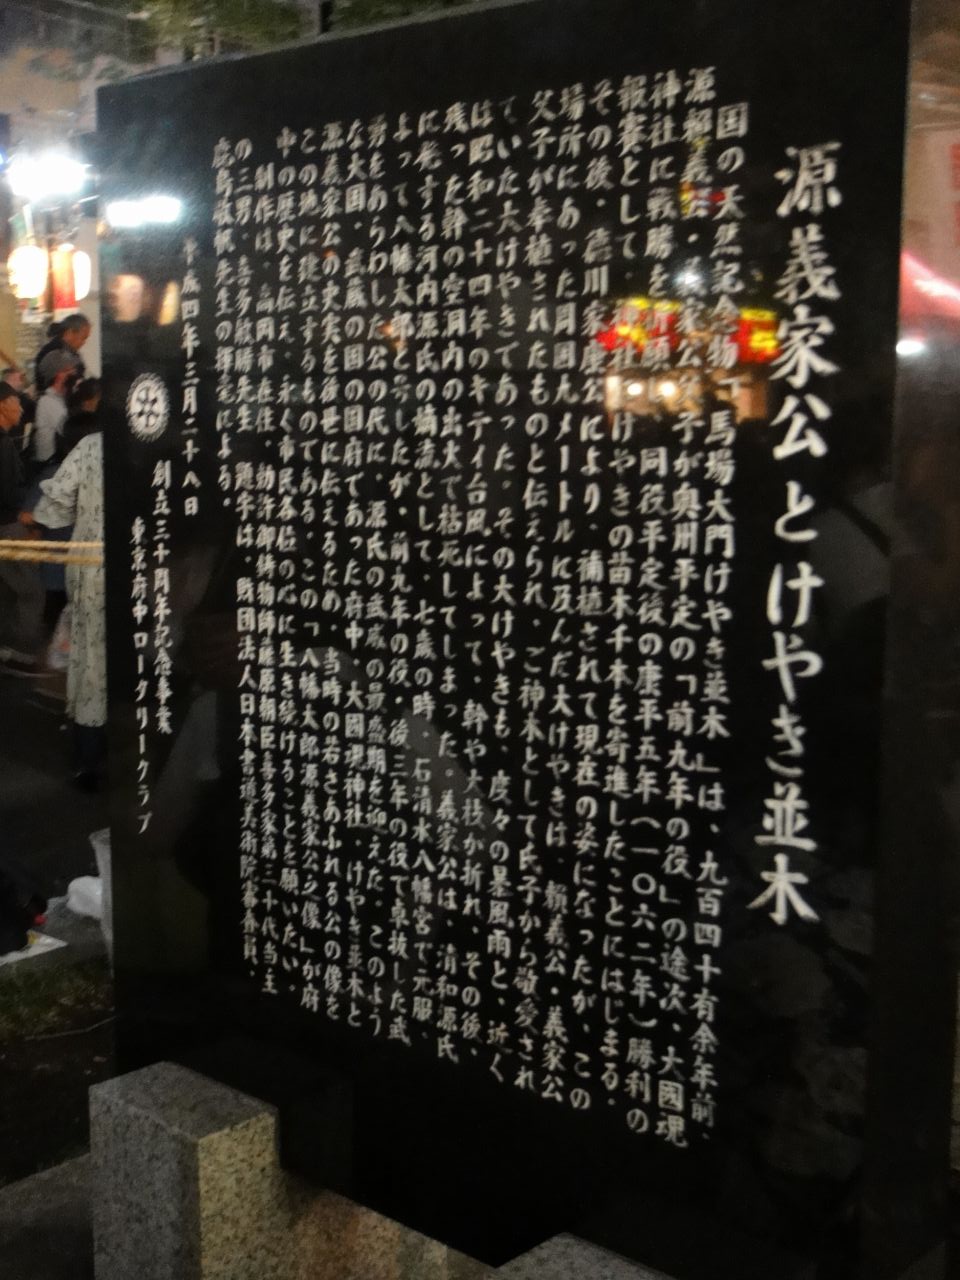 源義家公とけやき並木
国の天然記念物「馬場大門けやき並木」は、九百四十有余年前、
源頼義公・義家公父子が奥州平定の「前九年の役」の途次、大國魂
神社に戦勝を祈願し、同役平定後の康平五年(一〇六二年)勝利の
報賽として、神社へけやきの苗木千本を寄進したことにはじまる。
その後、徳川家康公により、補植されて現在の姿になったが、この
場所にあった周囲九メートルに及んだ大けやきは、頼義公・義家公
父子が奉植されたものと伝えられ、ご神木として氏子から敬愛され
ていた大けやきであった。その大けやきも、度々の暴風雨と、近く
は昭和二十四年のキティ台風によって、幹や大枝が折れ、その後、
残った幹の空洞内の出火で枯死してしまった。義家公は、清和源氏
に発する河内源氏の嫡流として、七歳の時、石清水八幡宮で元服、
よって八幡太郎と号したが、前九年の役・後三年の役で卓抜した武
勇をあらわした公の代に、源氏の武威の最盛期を迎えた。このよう
な大国、武蔵の国の国府であった府中、大國魂神社、けやき並木と
源義家公の史実を後世に伝えるため、当時の若さあふれる公の像を
この地に建立するものである。この「八幡太郎源義家公之像」が府
中の歴史を伝え、永く市民各位の心に生き続けることを願いたい。
制作は、高岡市在住、勅許御鋳物師藤原朝臣喜多家第三十代当主
の三男、喜多敏勝先生 題字は、財団法人日本書道美術院審査員、
先生の揮毫による。
平成四年三月二十八日
創立三十周年記念事業
東京府中ロータリークラブ